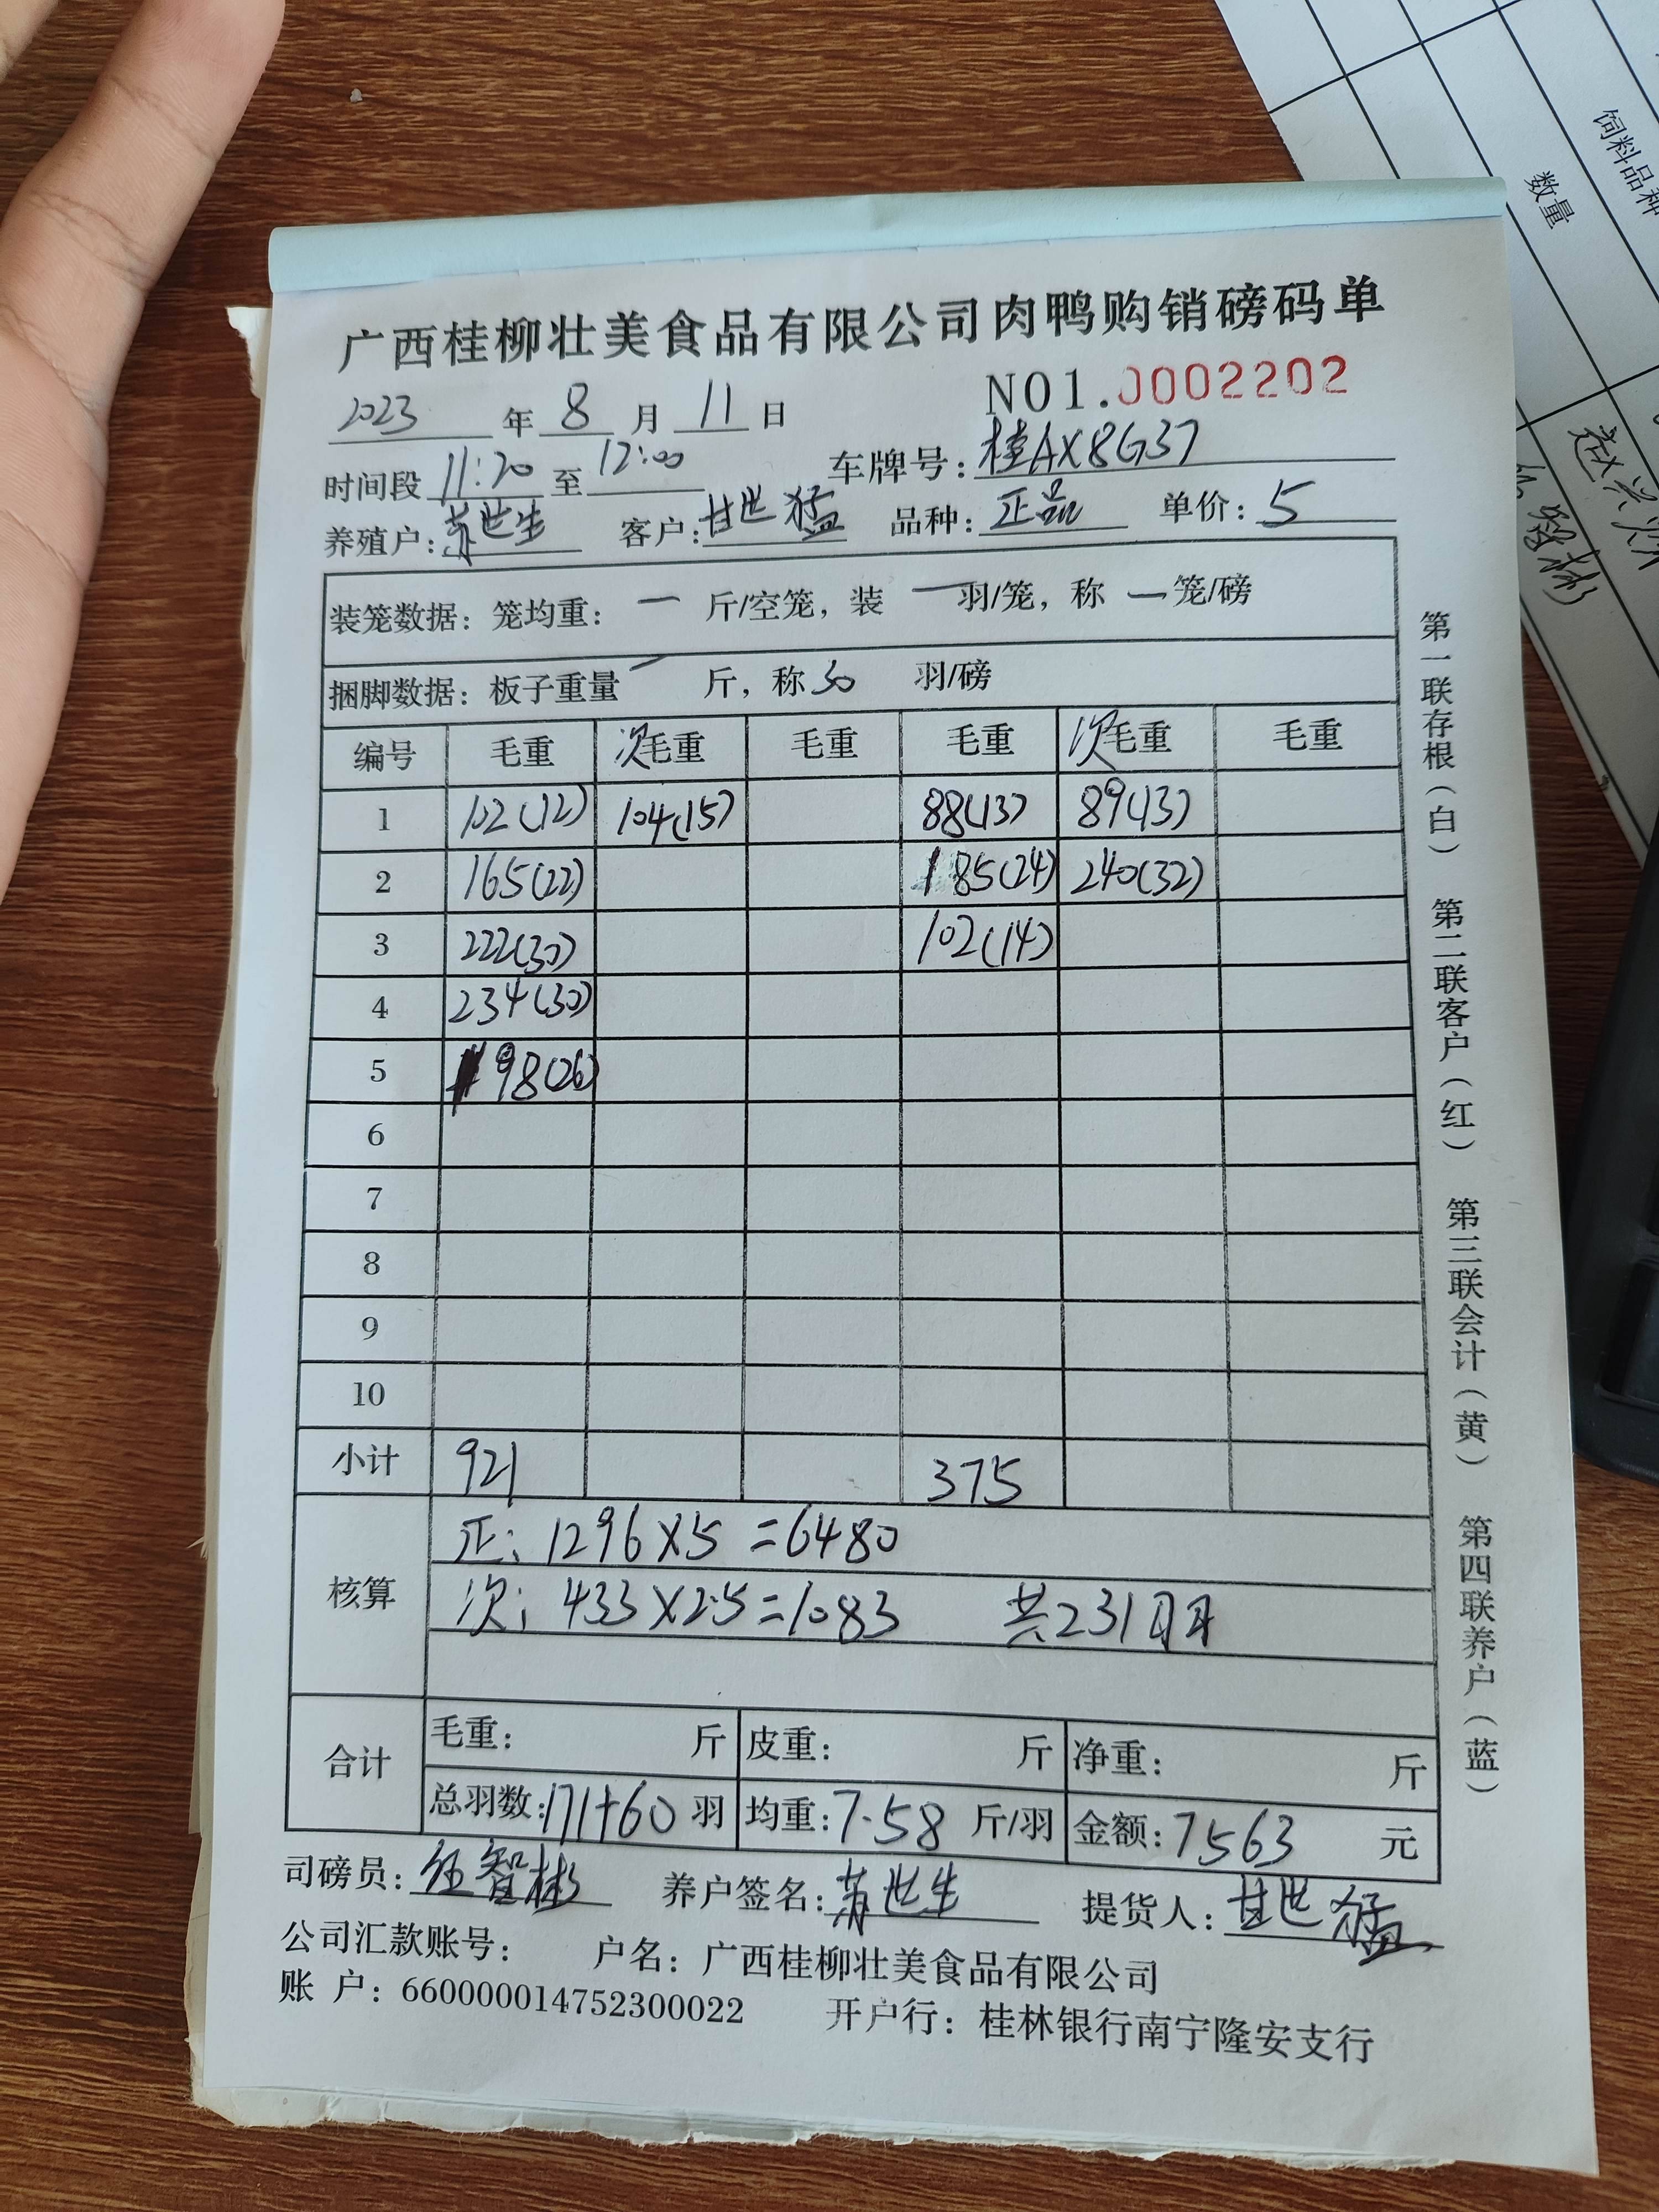 饲料品种
数量
广西桂柳壮美食品有限公司肉鸭购销磅码单
2023 年 8 月 11 日 NO1.0002202
时间段 11:20 至 12:00 车牌号: 桂AX8G37
养殖户: 苏世生 客户: 甘世猛 品种: 正品 单价: 5
装笼数据: 笼均重: 一 斤/空笼, 装 一 羽/笼, 称 一 笼/磅
捆脚数据: 板子重量 一 斤, 称 30 羽/磅
编号 毛重 次毛重 毛重 毛重 次毛重 毛重
1 102(12) 104(15) 88(13) 89(13)
2 165(22) 185(24) 240(32)
3 222(30) 102(14)
4 234(30)
5 198(26)
6
7
8
9
10
小计 921 375
核算 正: 1296×5=6480
次: 433×2.5=1083 共231只
合计 毛重: 斤 皮重: 斤 净重: 斤
总羽数: 171+60 羽 均重: 7.58 斤/羽 金额: 7563 元
司磅员: 智彬 养户签名: 苏世生 提货人: 甘世猛
公司汇款账号: 户名: 广西桂柳壮美食品有限公司
账 户: 660000014752300022 开户行: 桂林银行南宁隆安支行
第一联存根(白) 第二联客户(红) 第三联会计(黄) 第四联养户(蓝)